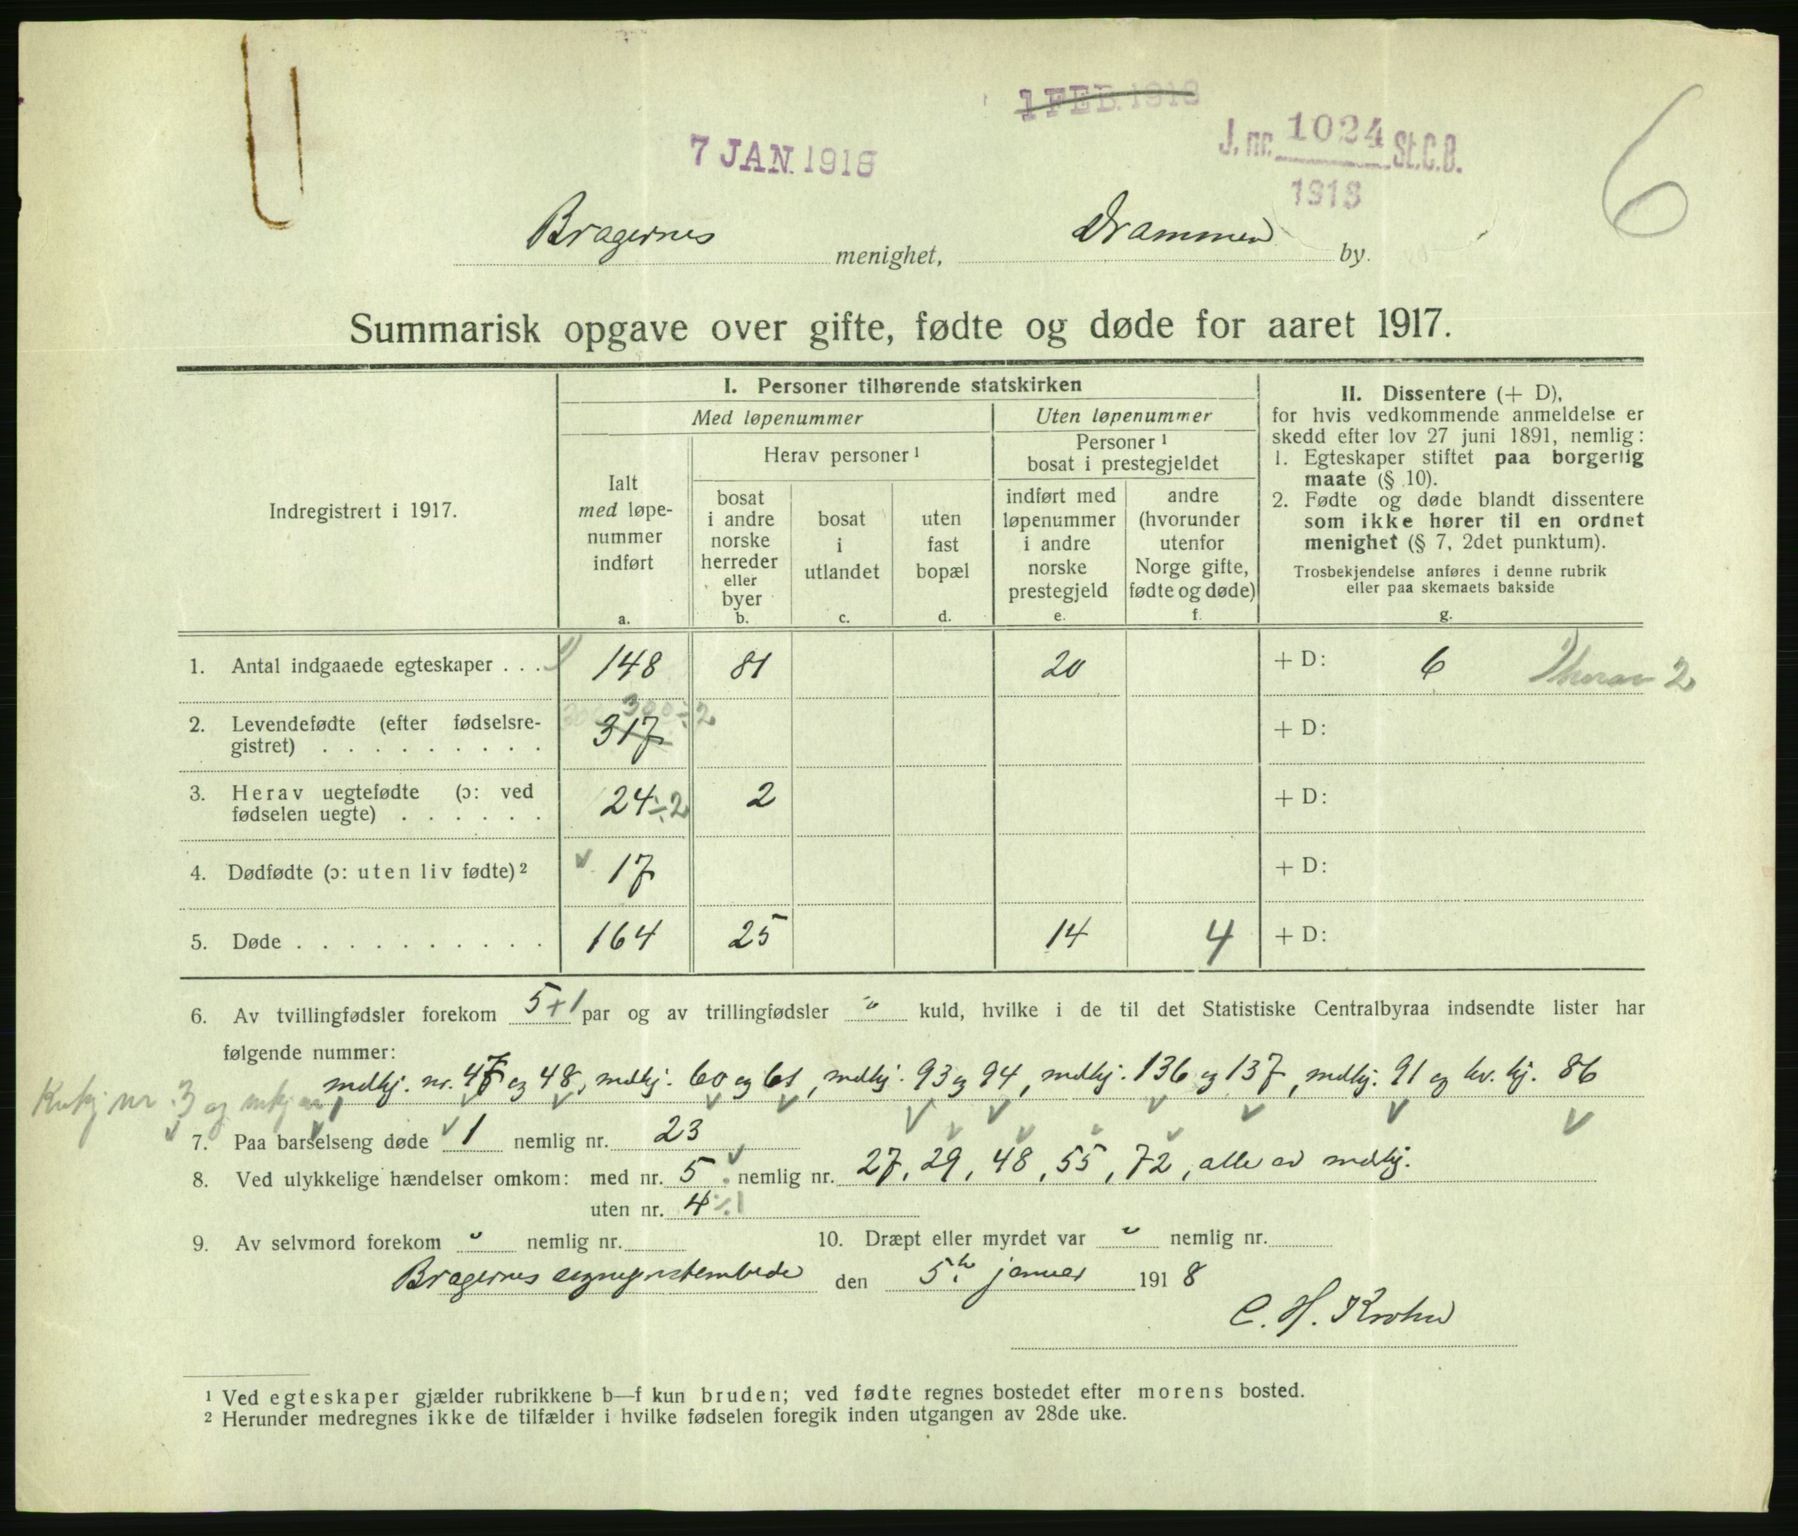 1 FEB. 1918
7 JAN. 1918
J. nr. 1024 St.C.B.
1918
6
Bragernes menighet, Drammen by.
Summarisk opgave over gifte, fødte og døde for aaret 1917.
Indregistrert i 1917.
I. Personer tilhørende statskirken
Med løpenummer
Uten løpenummer
Ialt
med løpe-
nummer
indført
a.
Herav personer ¹
bosat
i andre
norske
herreder
eller
byer
b.
bosat
i
utlandet
c.
uten
fast
bopæl
d.
Personer ¹
bosat i prestegjeldet
indført med
løpenummer
i andre
norske
prestegjeld
e.
andre
(hvorunder
utenfor
Norge gifte,
fødte og døde)
f.
II. Dissentere (+ D),
for hvis vedkommende anmeldelse er
skedd efter lov 27 juni 1891, nemlig:
1. Egteskaper stiftet paa borgerlig
maate (§ 10).
2. Fødte og døde blandt dissentere
som ikke hører til en ordnet
menighet (§ 7, 2det punktum).
Trosbekjendelse anføres i denne rubrik
eller paa skemaets bakside
g.
1. Antal indgaaede egteskaper . . . 148 81 20 + D: 6 herav 2
300 ÷ 2
2. Levendefødte (efter fødselsre-
gistret) . . . . . . . . . 317 + D:
3. Herav uegtefødte (ɔ: ved
fødselen uegte) . . . . . . 24 ÷ 2 2 + D:
4. Dødfødte (ɔ: uten liv fødte) ² 17 + D:
5. Døde . . . . . . . . . . 164 25 14 4 + D:
6. Av tvillingfødsler forekom 5+1 par og av trillingfødsler " kuld, hvilke i de til det Statistiske Centralbyraa indsendte lister har
følgende nummer:
mdkj. nr. 47 og 48, mdkj. 60 og 61, mdkj. 93 og 94, mdkj. 136 og 137, mdkj. 91 og kv. kj. 86
nr. 3 og
7. Paa barselseng døde 1 nemlig nr. 23
8. Ved ulykkelige hændelser omkom: med nr. 5 nemlig nr. 27, 29, 48, 55, 72, alle av mdkj.
uten nr. 4 ÷ 1
9. Av selvmord forekom " nemlig nr.
10. Dræpt eller myrdet var " nemlig nr.
Bragernes sogneprestembede den 5te januar 1918
C. H. Krohn
¹ Ved egteskaper gjælder rubrikkene b—f kun bruden; ved fødte regnes bostedet efter morens bosted.
² Herunder medregnes ikke de tilfælder i hvilke fødselen foregik inden utgangen av 28de uke.